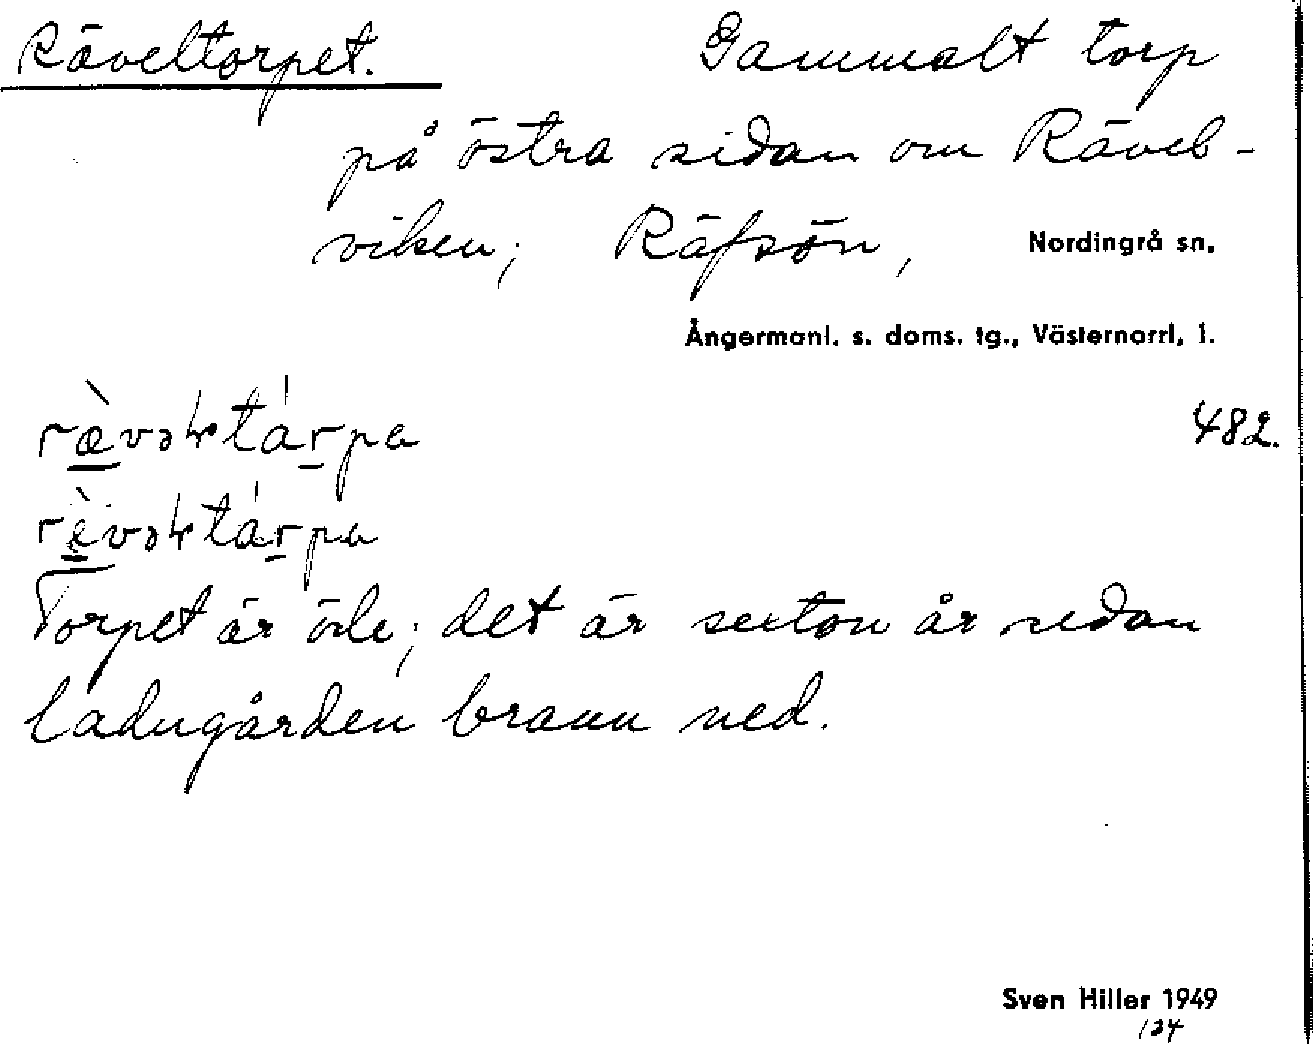 Räveltorpet. Gammalt torp
på östra sidan om Rävels-
viken; Räfsön, Nordingrå sn.
Ångermanl. s. doms. tg., Västernorrl. l.
482.
Torpet är öde; det är sexton år sedan
ladugården brann ned.
Sven Hiller 1949
134